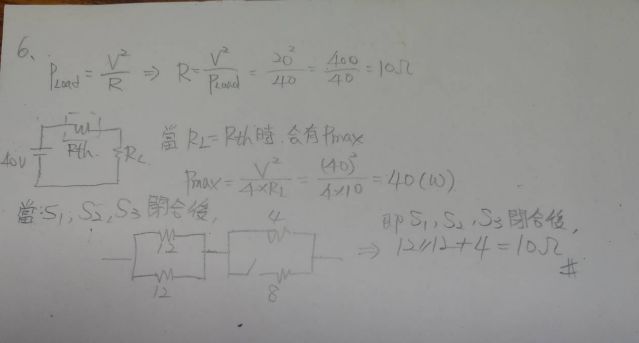 6、
P_Load = V²/R ⇒ R = V²/P_Load = 20²/40 = 400/40 = 10Ω
40V Rth. R_L
當 R_L = Rth時, 會有Pmax
Pmax = V²/(4×R_L) = (40)²/(4×10) = 40(W)
當:S₁, S₂, S₃ 閉合後,
12 4
12 8
即 S₁, S₂, S₃ 閉合後,
⇒ 12//12+4 = 10Ω
#